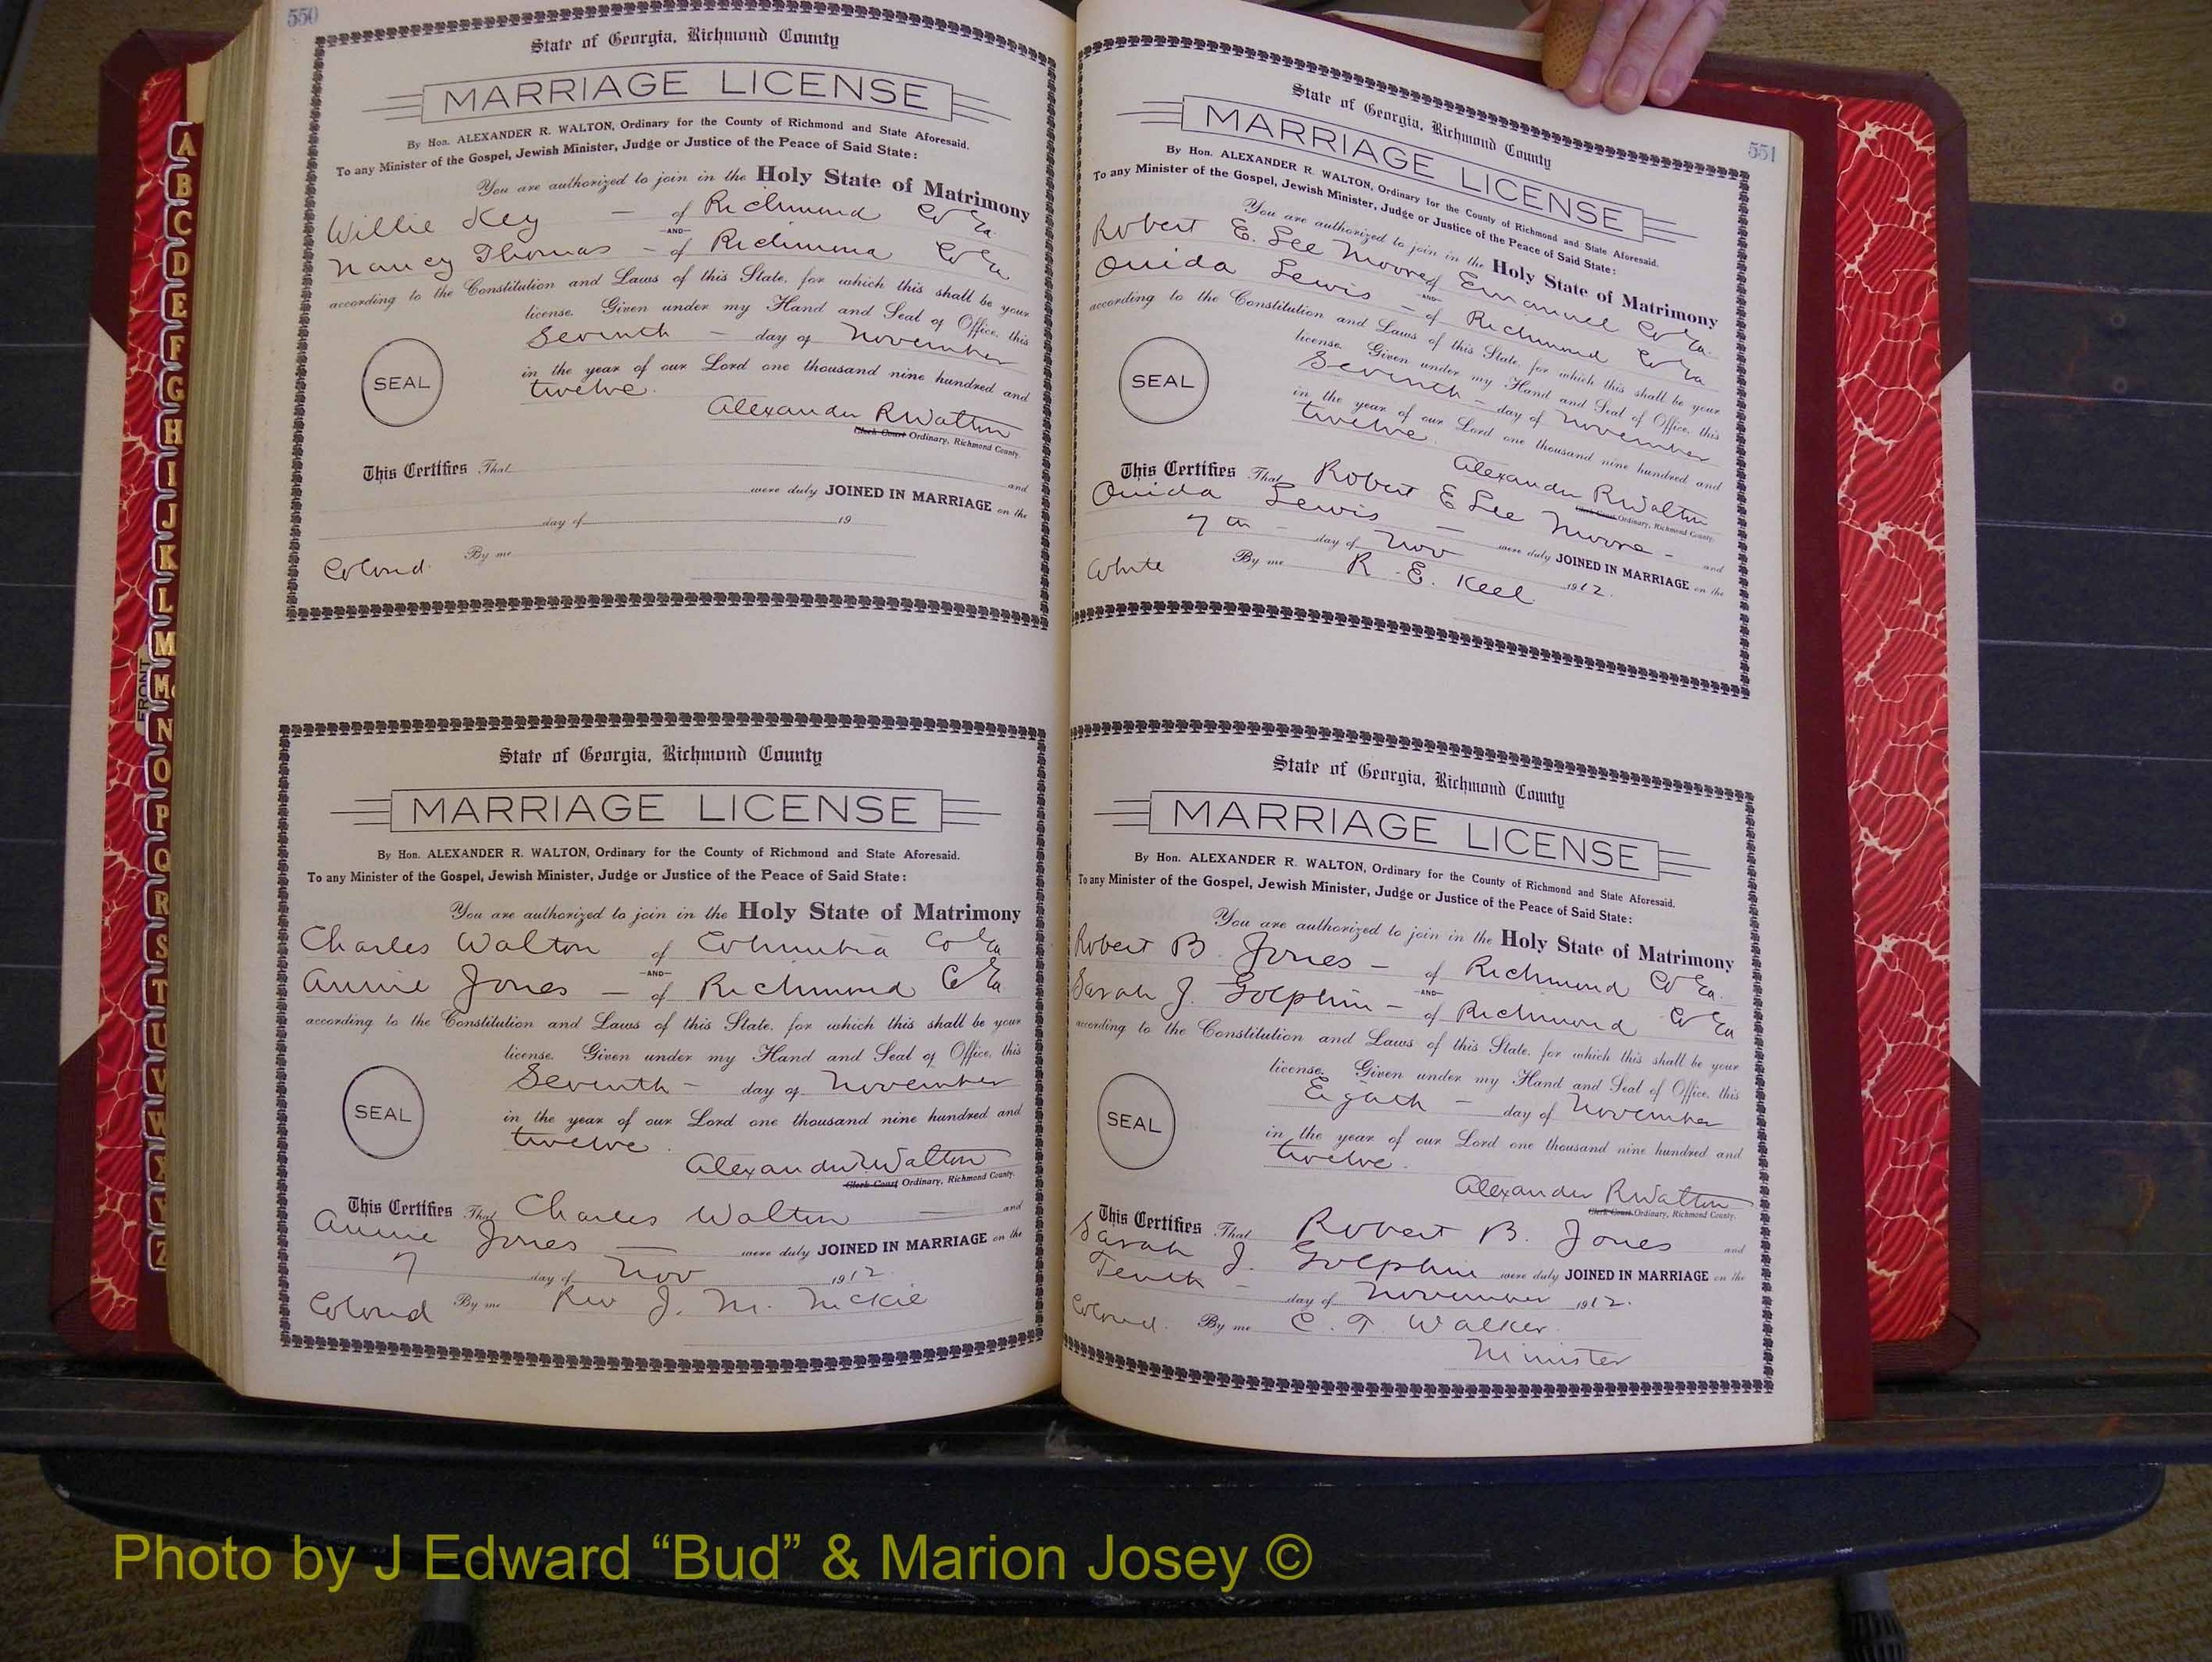 550
State of Georgia, Richmond County
MARRIAGE LICENSE
By Hon. ALEXANDER R. WALTON, Ordinary for the County of Richmond and State Aforesaid.
To any Minister of the Gospel, Jewish Minister, Judge or Justice of the Peace of Said State:
You are authorized to join in the Holy State of Matrimony
Willie Key — of Richmond Co Ga.
—AND—
Nancy Thomas — of Richmond Co Ga
according to the Constitution and Laws of this State, for which this shall be your
license. Given under my Hand and Seal of Office, this
Seventh — day of November
in the year of our Lord one thousand nine hundred and
SEAL
twelve.
Alexander R Walton
Clerk Court Ordinary, Richmond County.
This Certifies That and
were duly JOINED IN MARRIAGE on the
day of 19
Colored. By me
State of Georgia, Richmond County
MARRIAGE LICENSE
By Hon. ALEXANDER R. WALTON, Ordinary for the County of Richmond and State Aforesaid.
To any Minister of the Gospel, Jewish Minister, Judge or Justice of the Peace of Said State:
You are authorized to join in the Holy State of Matrimony
Charles Walton of Columbia Co Ga
—AND—
Annie Jones — of Richmond Co Ga
according to the Constitution and Laws of this State, for which this shall be your
license. Given under my Hand and Seal of Office, this
Seventh — day of November
SEAL
in the year of our Lord one thousand nine hundred and
twelve.
Alexander R Walton
Clerk Court Ordinary, Richmond County.
This Certifies That Charles Walton — and
Annie Jones — were duly JOINED IN MARRIAGE on the
7 day of Nov 1912
Colored By me Rev J. M. Nickie
551
State of Georgia, Richmond County
MARRIAGE LICENSE
By Hon. ALEXANDER R. WALTON, Ordinary for the County of Richmond and State Aforesaid.
To any Minister of the Gospel, Jewish Minister, Judge or Justice of the Peace of Said State:
You are authorized to join in the Holy State of Matrimony
Robert E. Lee Moore of Emanuel Co Ga.
—AND—
Ouida Lewis — of Richmond Co Ga
according to the Constitution and Laws of this State, for which this shall be your
license. Given under my Hand and Seal of Office, this
Seventh — day of November
SEAL
in the year of our Lord one thousand nine hundred and
twelve.
Alexander R Walton
Clerk Court Ordinary, Richmond County.
This Certifies That Robert E Lee Moore — and
Ouida Lewis — were duly JOINED IN MARRIAGE on the
7th — day of Nov 1912.
White By me R. E. Keel
State of Georgia, Richmond County
MARRIAGE LICENSE
By Hon. ALEXANDER R. WALTON, Ordinary for the County of Richmond and State Aforesaid.
To any Minister of the Gospel, Jewish Minister, Judge or Justice of the Peace of Said State:
You are authorized to join in the Holy State of Matrimony
Robert B. Jones — of Richmond Co Ga.
—AND—
Sarah J. Golphin — of Richmond Co Ga
according to the Constitution and Laws of this State, for which this shall be your
license. Given under my Hand and Seal of Office, this
Eigath — day of November
SEAL
in the year of our Lord one thousand nine hundred and
twelve.
Alexander R Walton
Clerk Court Ordinary, Richmond County.
This Certifies That Robert B. Jones and
Sarah J. Golphin were duly JOINED IN MARRIAGE on the
Tenth — day of November 1912.
Colored. By me C. T. Walker.
Minister
FRONT
A
B
C
D
E
F
G
H
I
J
K
L
M
Mc
N
O
P
Q
R
S
T
U
V
W
X
Y
Z
Photo by J Edward “Bud” & Marion Josey ©